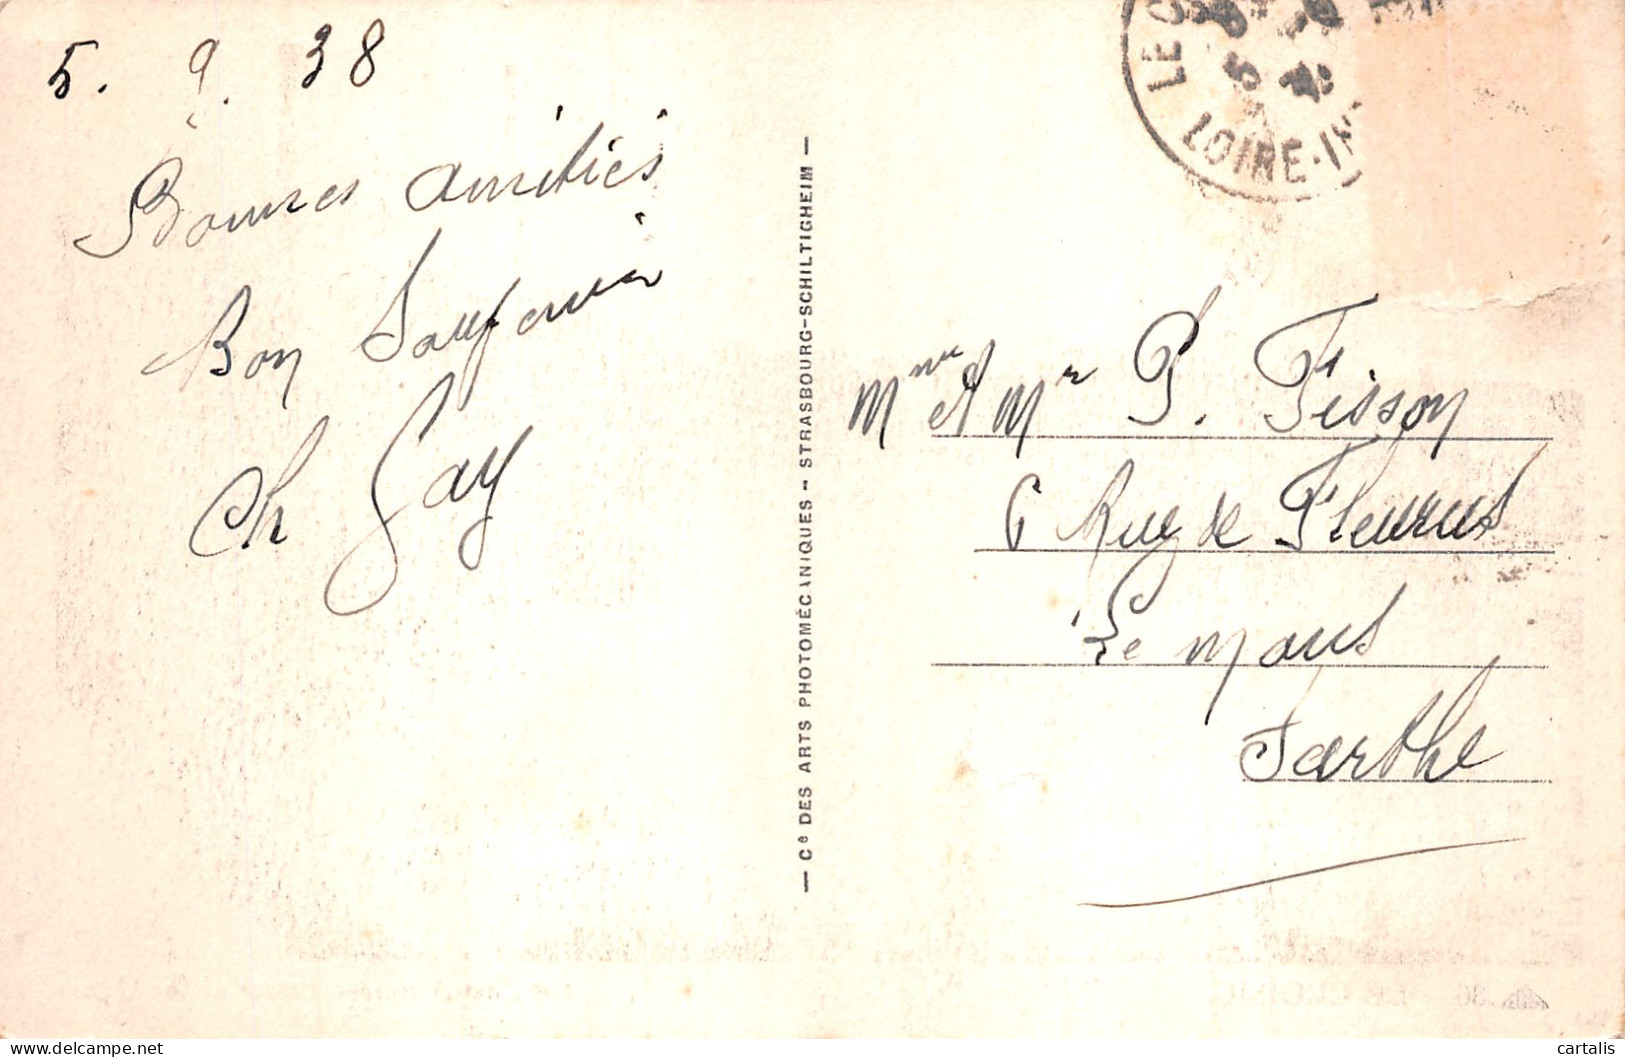 5. 9. 38
Bonnes amitiés
Bon Souvenir
Ch Gay
— Cᵉ DES ARTS PHOTOMÉCANIQUES - STRASBOURG-SCHILTIGHEIM —
LE C
LOIRE-IN
Mme et Mr P. Fisson
6 Rue de Fleurus
Le Mans
Sarthe
cartalis